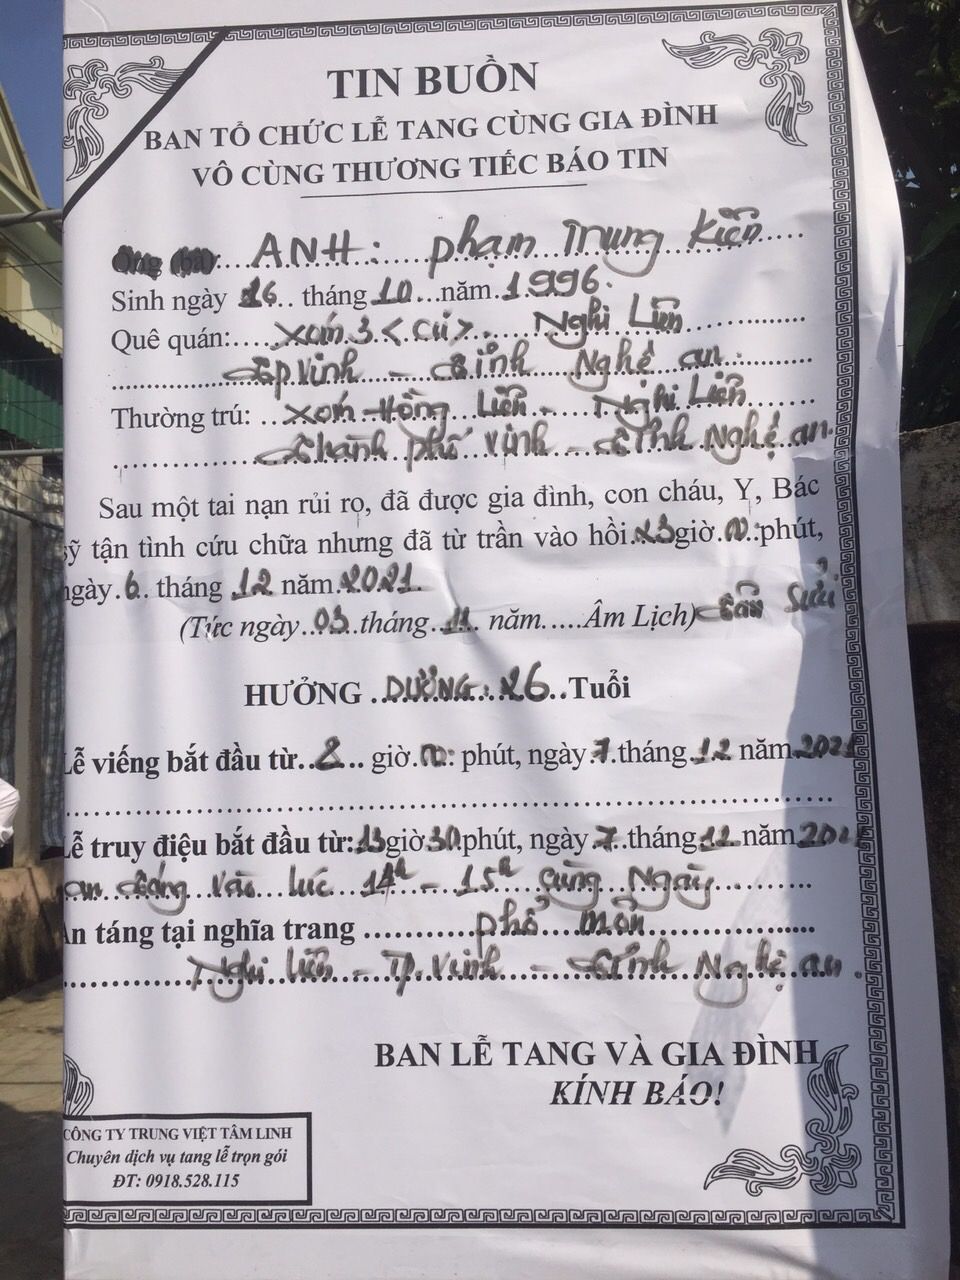 TIN BUỒN
BAN TỔ CHỨC LỄ TANG CÙNG GIA ĐÌNH
VÔ CÙNG THƯƠNG TIẾC BÁO TIN
ANH: Phạm Trung Kiên
Sinh ngày 16 tháng 10 năm 1996.
Quê quán: Xóm 3 <Cũ>. Nghi Liên
Tp Vinh - Tỉnh Nghệ an.
Thường trú: Xóm Hồng Liên - Nghi Liên
Thành phố Vinh - Tỉnh Nghệ an.
Sau một tai nạn rủi rọ, đã được gia đình, con cháu, Y, Bác
sỹ tận tình cứu chữa nhưng đã từ trần vào hồi 23 giờ phút,
ngày 6 tháng 12 năm 2021
(Tức ngày 03 tháng 11 năm.....Âm Lịch) Tân Sửu
HƯỞNG DƯƠNG: 26 Tuổi
Lễ viếng bắt đầu từ 8 giờ phút, ngày 7 tháng 12 năm 2021
Lễ truy điệu bắt đầu từ: 13 giờ 30 phút, ngày 7 tháng 12 năm 2021
an táng vào lúc 14h - 15h Cùng Ngày
An táng tại nghĩa trang Phổ môn
Nghi Liên - Tp. Vinh - Tỉnh Nghệ an.
BAN LỄ TANG VÀ GIA ĐÌNH
KÍNH BÁO!
CÔNG TY TRUNG VIỆT TÂM LINH
Chuyên dịch vụ tang lễ trọn gói
ĐT: 0918.528.115